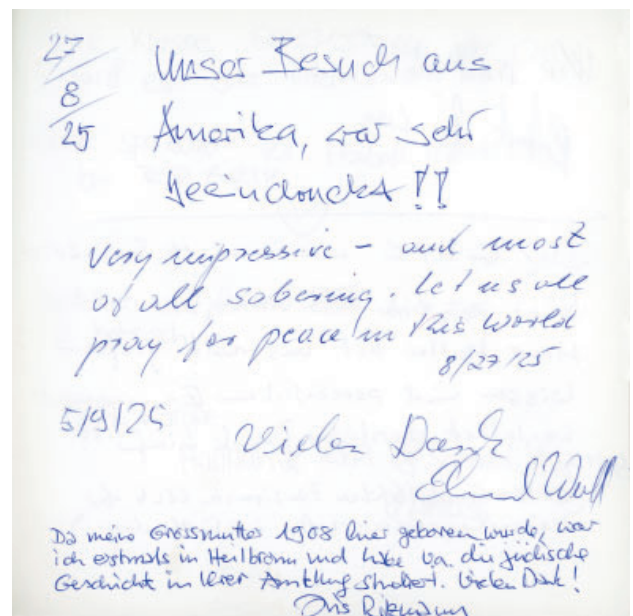 27/8 25 Unser Besuch aus
Amerika, war sehr
beeindruckt!!
very impressive - and most
of all sobering. Let us all
pray for peace in this world
8/27/25
5/9/25
Vielen Dank
Da meine Grossmutter 1908 hier geboren wurde, war
ich erstmals in Heilbronn und habe v.a. die jüdische
Geschichte in Ihrer studiert. Vielen Dank!